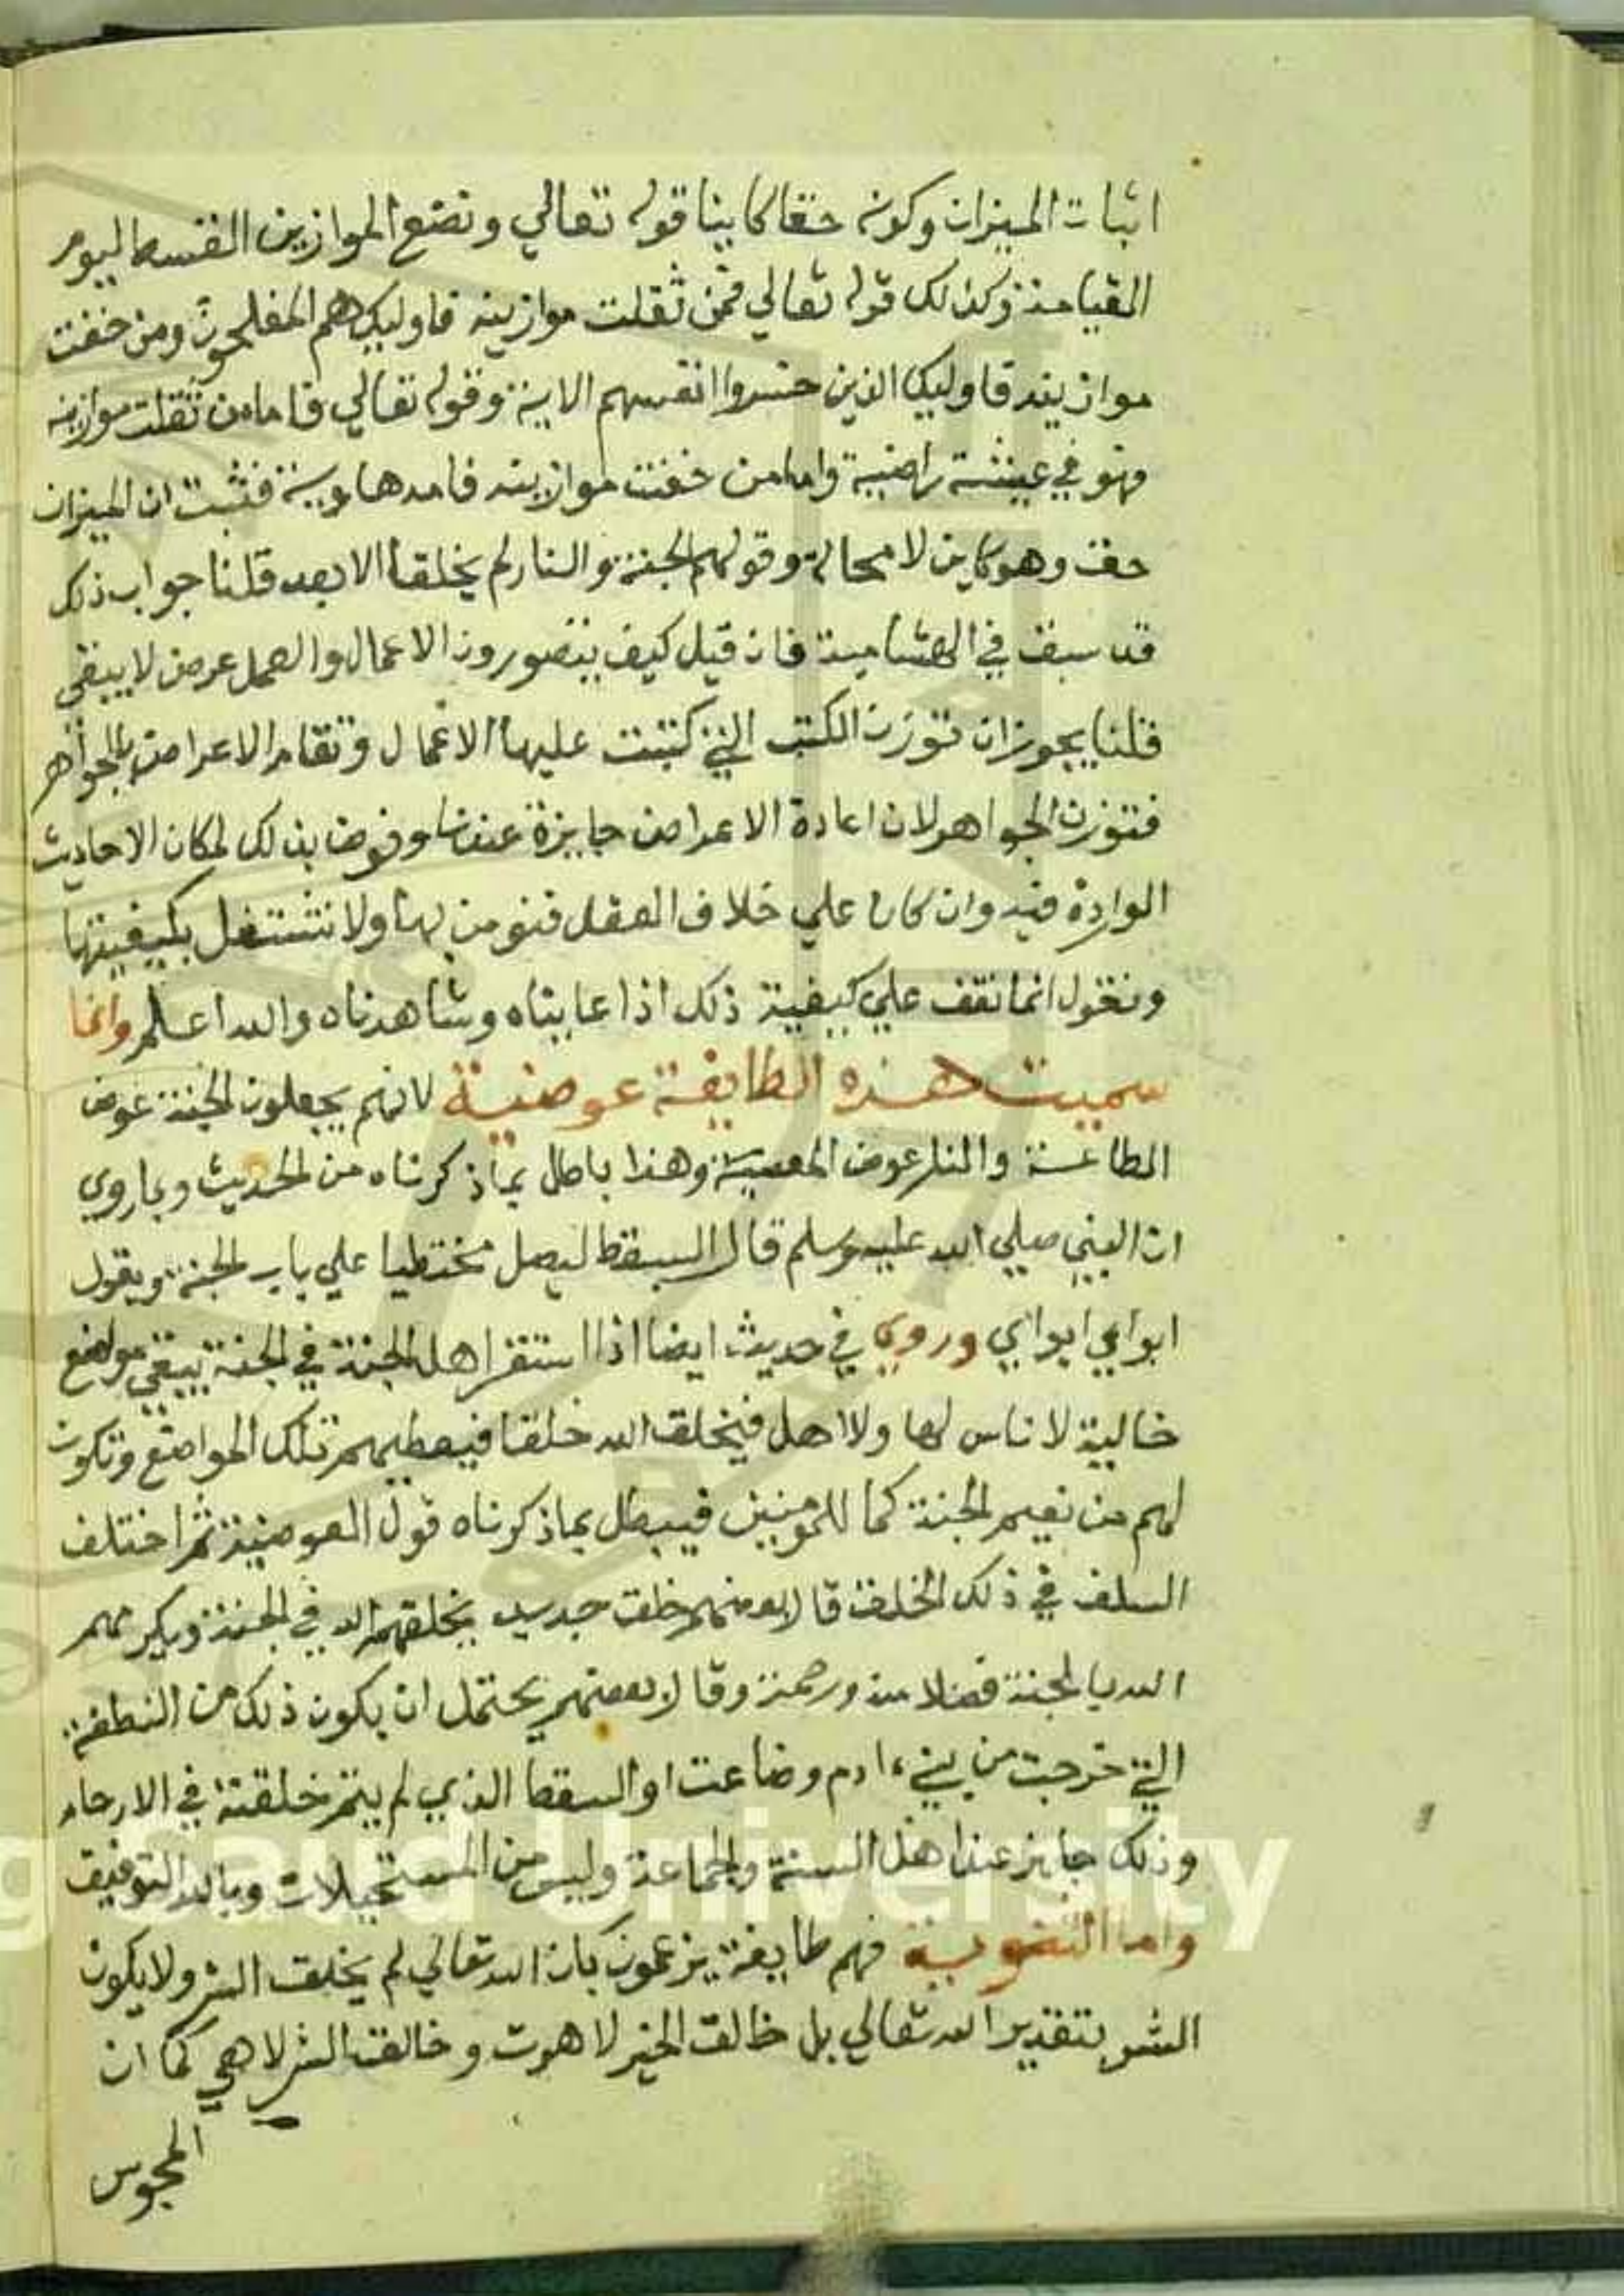 اثبات الميزان وكونه حقا كاينا قوله تعالي ونضع الموازين القسط ليوم
القيامة وكذلك قوله تعالي فمن ثقلت موازينه فاوليك هم المفلحون ومن خفت
موازينه فاوليك الذين خسروا انفسهم الاية وقوله تعالي فاما من ثقلت موازينه
فهو في عيشة راضية واما من خفت موازينه فامه هاوية فثبت ان الميزان
حق وهو كاين لا محالة وقولهم الجنة والنار لم يخلقا الا بعد قلنا جواب ذلك
قد سبق في الهشامية فان قيل كيف يتصور وزن الاعمال والعمل عرض لا يبقي
قلنا يجوز ان توزن الكتب التي كتبت عليها الاعمال وتقام الاعراض بالجواهر
فتوزن الجواهر لان اعادة الاعراض جايزة عندنا ونرضي بذلك لمكان الاحاديث
الواردة فيه وان كان علي خلاف العقل فنومن بها ولا نشتغل بكيفيتها
ونقول انما نقف علي كيفية ذلك اذا عايناه وشاهدناه والله اعلم وانما
سميت هذه الطايفة عوضية لانهم يجعلون الجنة عوض
الطاعة والنار عوض المعصية وهذا باطل بما ذكرناه من الحديث وبما روي
ان النبي صلي الله عليه وسلم قال السقط ليصل مختطيا علي باب الجنة ويقول
ابواي ابواي وروي في حديث ايضا اذا استقر اهل الجنة في الجنة تبقي مواضع
خالية لا ناس لها ولا اهل فيخلق الله خلقا فيعطيهم تلك المواضع وتكون
لهم من نعيم الجنة كما للمومنين فيبطل بما ذكرناه قول العوضية ثم اختلف
السلف في ذلك الخلق قال بعضهم خلق جديد يخلقهم الله في الجنة ويكرمهم
الله بالجنة فضلا منه ورحمة وقال بعضهم يحتمل ان يكون ذلك من النطفة
التي خرجت من بني ءادم وضاعت او السقط الذي لم يتم خلقته في الارحام
وذلك جايز عند اهل السنة والجماعة وليس من المستحيلات وبالله التوفيق
واما الثنوية فهم طايفة يزعمون بان الله تعالي لم يخلق الشر ولا يكون
الشر بتقدير الله تعالي بل خالق الخير لاهوت وخالق الشر لاهي كما ان
المجوس
g Saud University